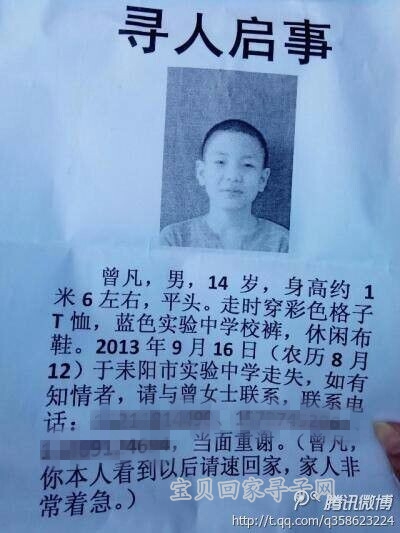 寻人启事
曾凡，男，14 岁，身高约 1
米 6 左右，平头。走时穿彩色格子
T 恤，蓝色实验中学校裤，休闲布
鞋。2013 年 9 月 16 日（农历 8 月
12）于耒阳市实验中学走失，如有
知情者，请与曾女士联系，联系电
话：
，当面重谢。（曾凡，
你本人看到以后请速回家，家人非
常着急。）
宝贝回家寻子网
腾讯微博
http://t.qq.com/q358623224